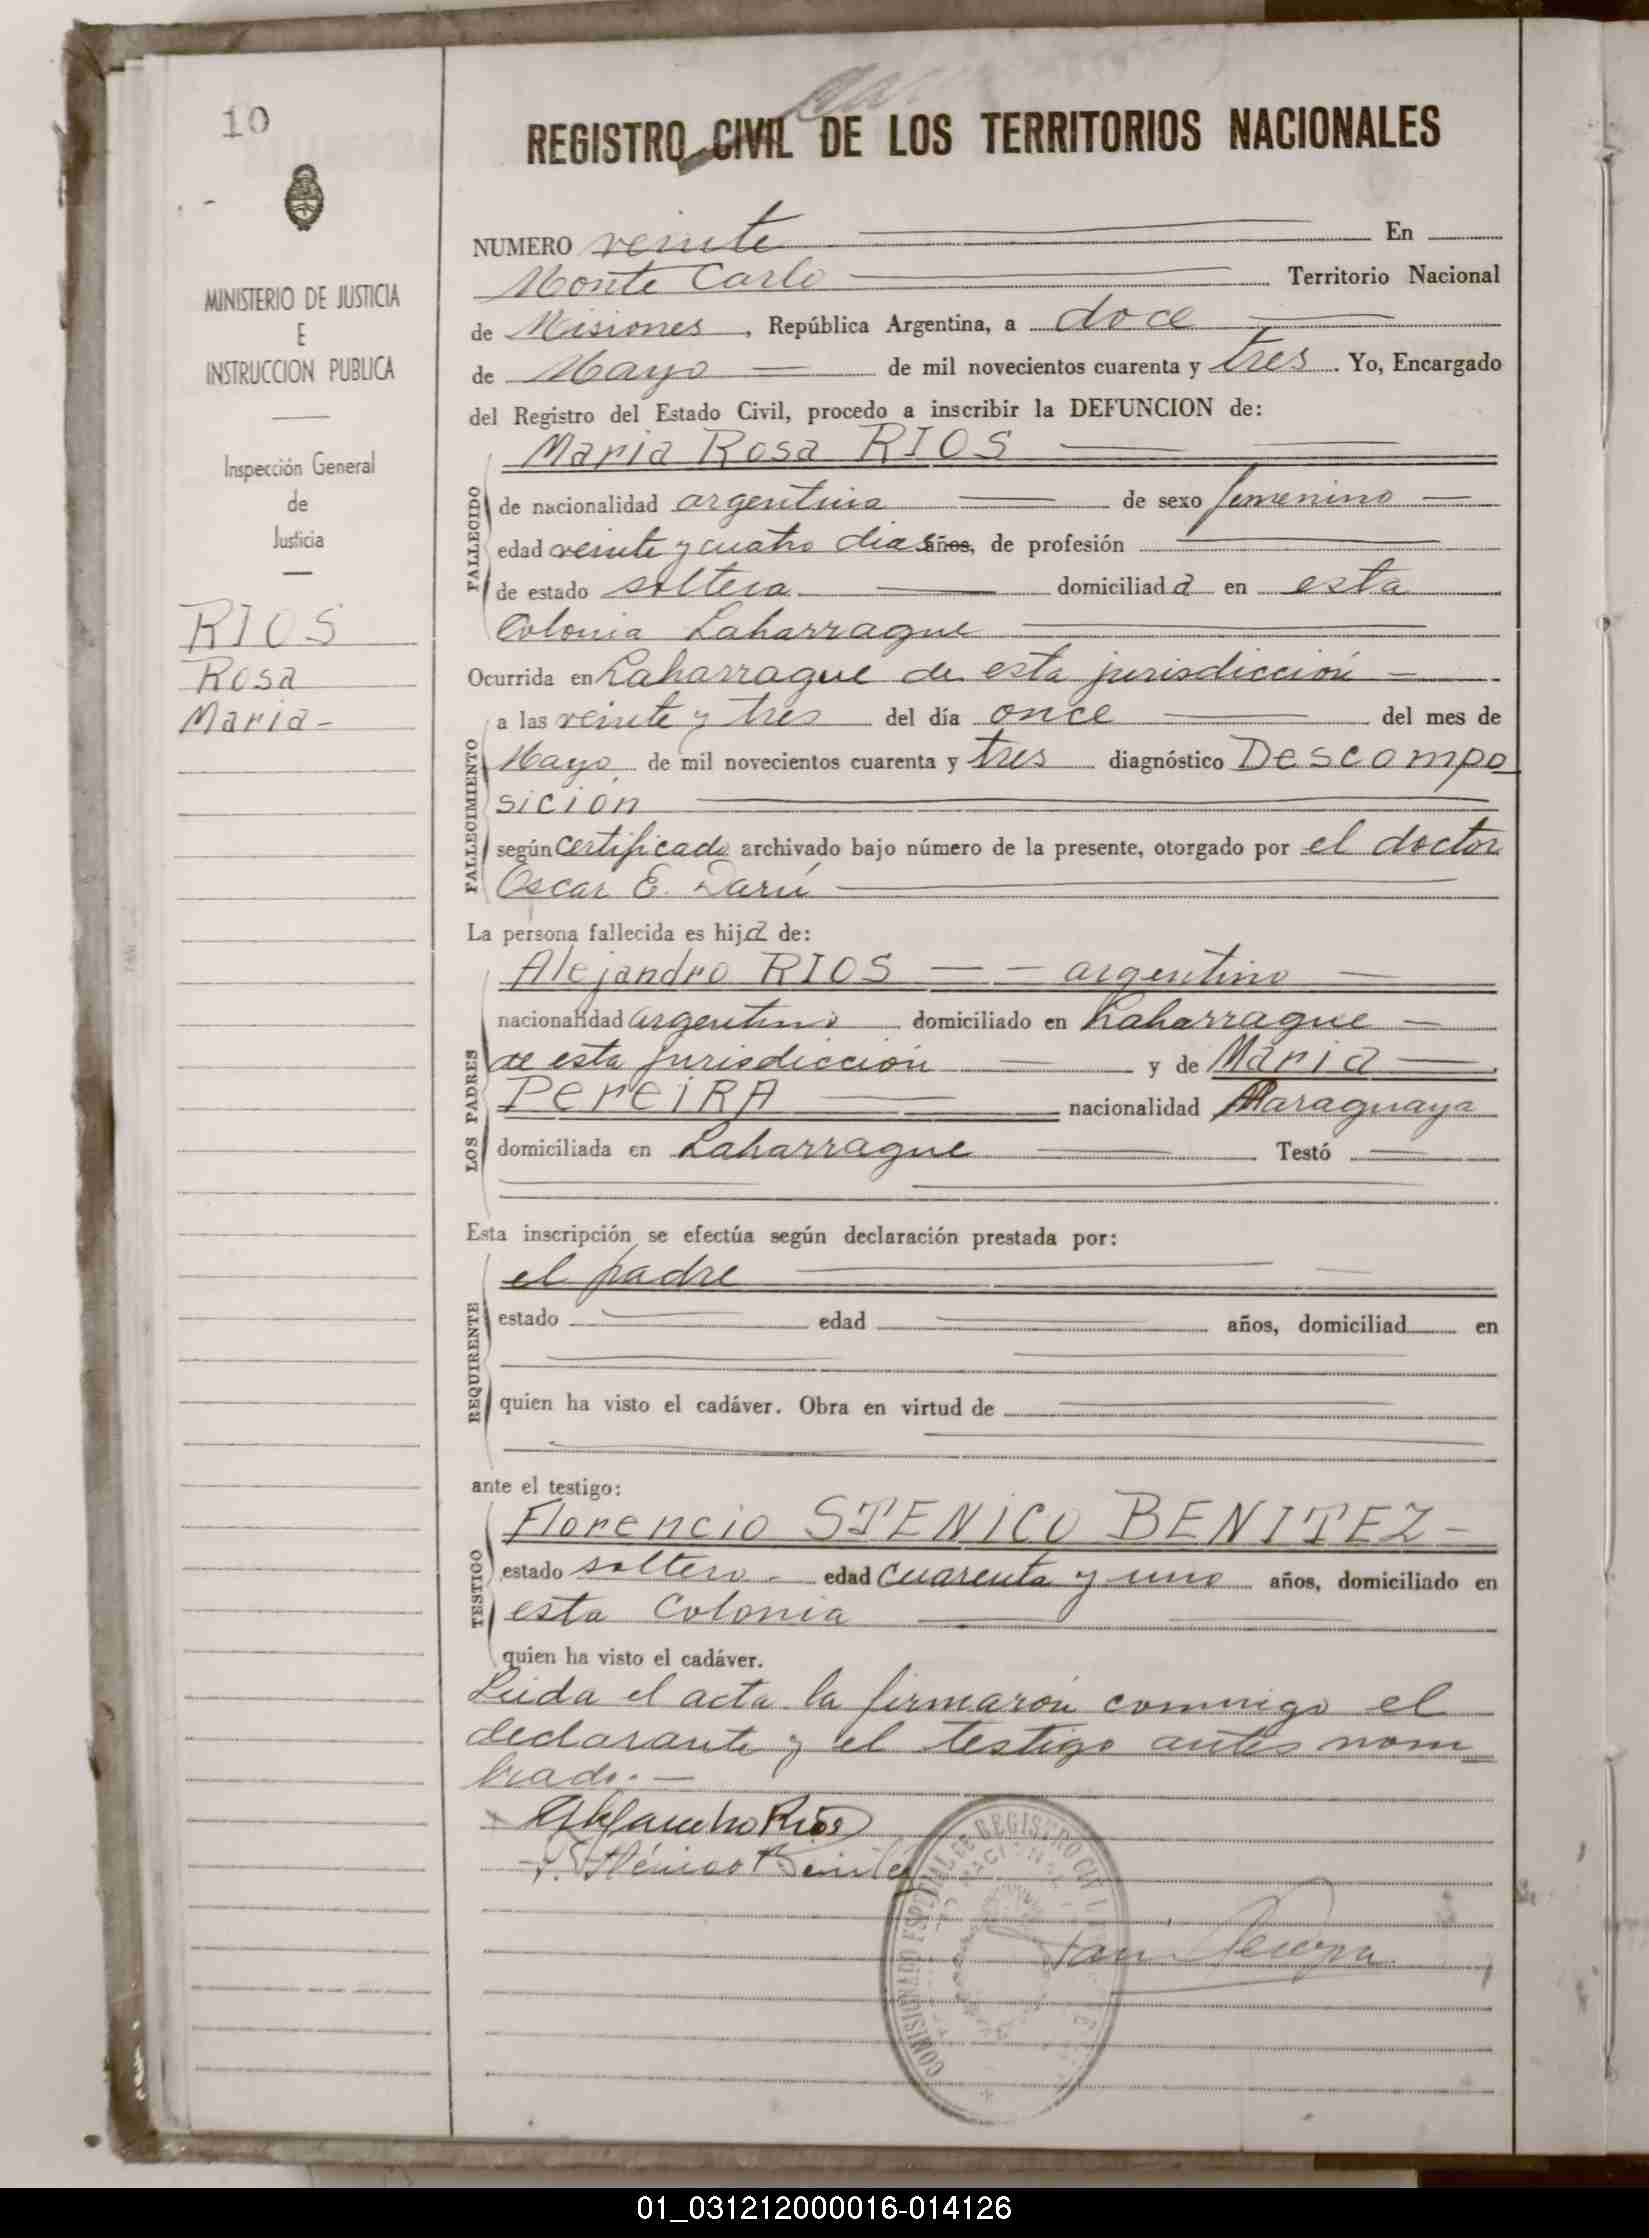 10
MINISTERIO DE JUSTICIA
E
INSTRUCCION PUBLICA
Inspección General
de
Justicia
RIOS
Rosa
Maria-
REGISTRO CIVIL DE LOS TERRITORIOS NACIONALES
NUMERO veinte En
Monte Carlo Territorio Nacional
de Misiones, República Argentina, a doce
de Mayo de mil novecientos cuarenta y tres. Yo, Encargado
del Registro del Estado Civil, procedo a inscribir la DEFUNCION de:
Maria Rosa RIOS
FALLECIDO
de nacionalidad argentina de sexo femenino
edad veinte y cuatro dias años, de profesión
de estado soltera domiciliada en esta
Colonia Laharrague
Ocurrida en Laharrague de esta jurisdicción
FALLECIMIENTO
a las veinte y tres del día once del mes de
Mayo de mil novecientos cuarenta y tres diagnóstico Descompo
sición
según certificado archivado bajo número de la presente, otorgado por el doctor
Oscar E. Darú
La persona fallecida es hija de:
LOS PADRES
Alejandro RIOS argentino
nacionalidad argentino domiciliado en Laharrague
de esta jurisdicción y de Maria
PereiRA nacionalidad Paraguaya
domiciliada en Laharrague Testó
Esta inscripción se efectúa según declaración prestada por:
REQUIRENTE
el padre
estado edad años, domiciliad en
quien ha visto el cadáver. Obra en virtud de
ante el testigo:
TESTIGO
Florencio STENICO BENITEZ-
estado soltero edad cuarenta y uno años, domiciliado en
esta Colonia
quien ha visto el cadáver.
Leida el acta la firmarón conmigo el
declarante y el testigo antes nom
brado.-
Alejandro Rios
F. Sténico Benitez
COMISIONADO ESPECIAL DE REGISTRO CIVIL
01_031212000016-014126